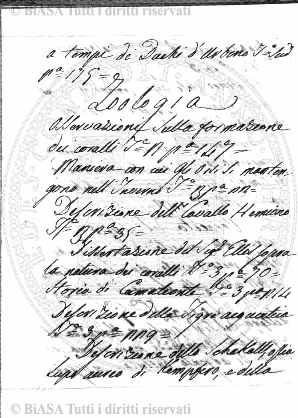 © BIASA Tutti i diritti riservati
a tempi de Duchi d'Urbino T.º
p.ª 175=
Zoologia
Osservazioni sulla formazione
dei coralli T.º p.ª 147=
Maniera con cui gli si manten
gono nell'Inverno T.º p.ª
Descrizione dell' Cavallo Hemiono
T.º p.ª 35=
Dissertazione del Sig. Ellis sopra
la natura dei coralli T.º 3 p.ª 90=
Storia di T.º 3 p.ª 14
Descrizione della Tigre acquatica
T.º 3 p.ª 119=
Descrizione dello Schakall, ossia
Lupo aureo di Kempfero, e della
© BIASA Tutti i diritti riservati